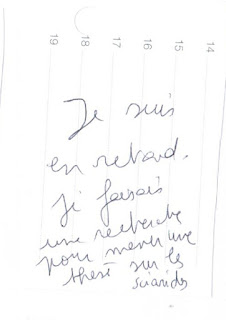 19 18 17 16 15 14
Je suis
en retard.
Je faisais
une recherche
pour une
thèse sur les